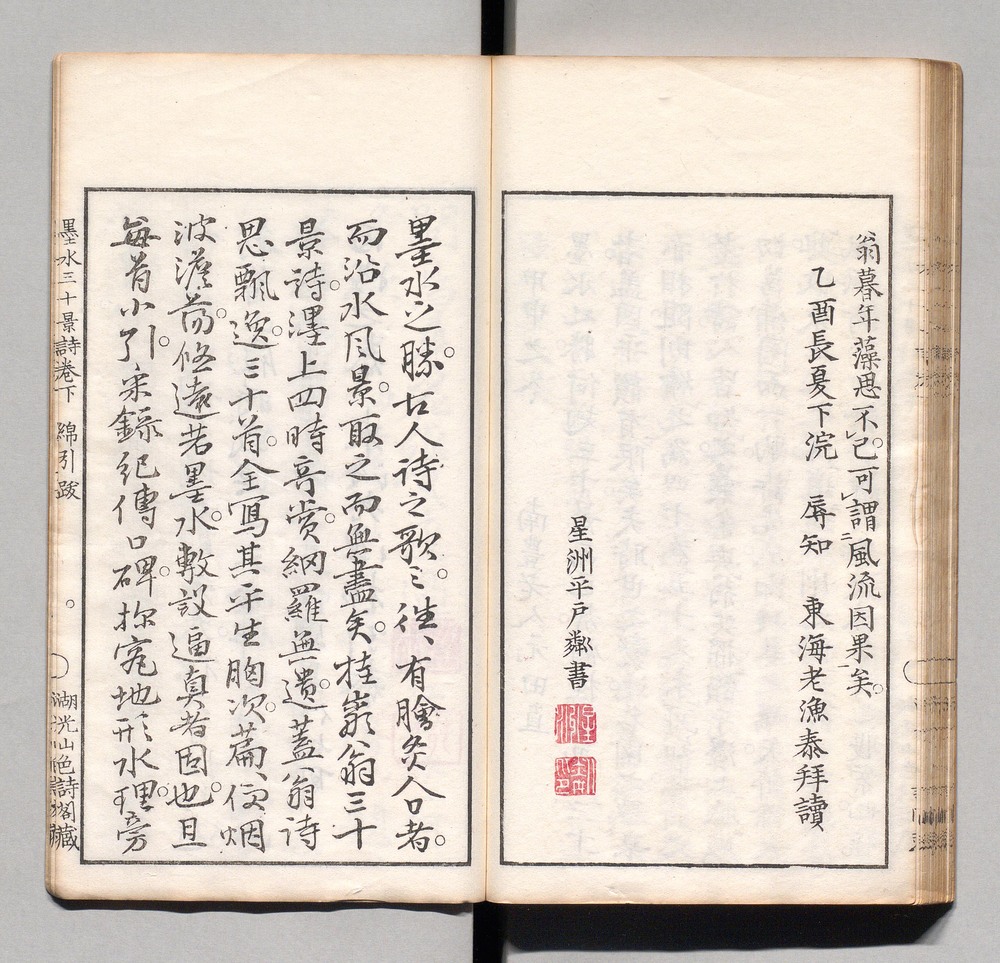 翁暮年藻思不已。可謂風流因果矣。
乙酉長夏下浣 辱知 東海老漁泰拜讀
星洲平戶鄰書
墨水之勝。古人詩之歌之。徃徃有膾炙人口者。
而沿水風景。取之而無盡矣。桂巖翁三十
景詩。澤上四時奇賞。網羅無遺。蓋翁詩
思飄逸。三十首。全寫其平生胸次。篇〻便烟
波澹蕩。悠遠若墨水。敷設逼真者固也。且
每首小引。采錄紀傳口碑。探究地形水理。旁
墨水三十景詩卷下 綿引跋
湖光山色詩閣藏